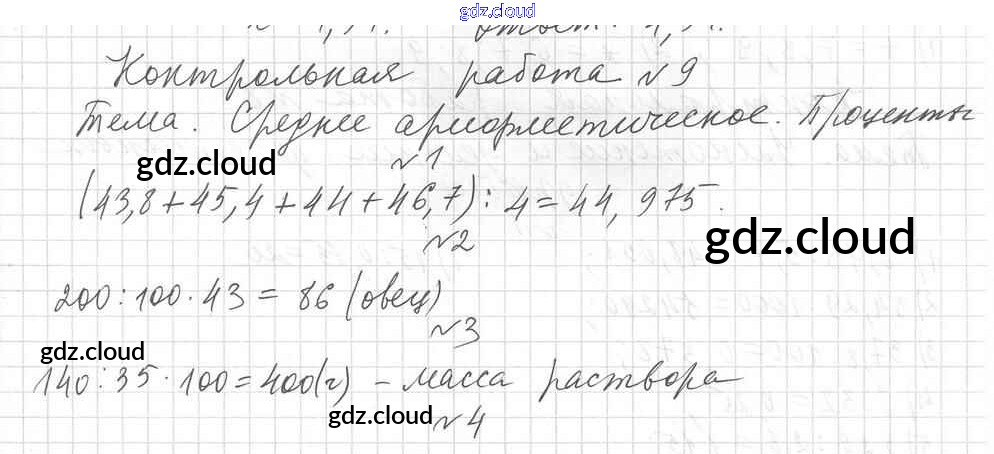 gdz.cloud
Контрольная работа №9
Тема. Среднее арифметическое. Проценты
gdz.cloud
№1
(43,8+45,4+44+46,7):4=44,975.
gdz.cloud
№2
200:100·43=86 (овец)
№3
gdz.cloud
140:35·100=400(г) – масса раствора
gdz.cloud
№4